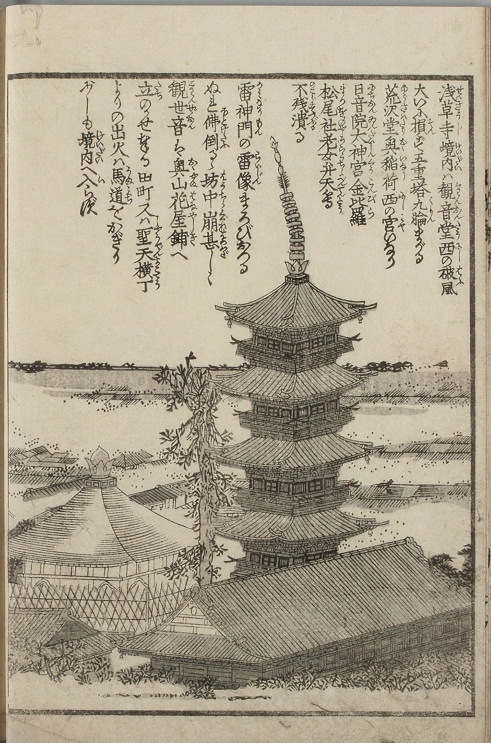 浅草寺境内ハ観音堂西の破風
大いに損じ五重塔九輪まがる
荒沢堂奥稲荷西の宮いなり
日音院女神宮金比羅
松尾社老女弁天等
不残潰る
雷神門の雷像まろびおつる
ぬれ佛倒る坊中崩甚しく
観世音ハ奥山花屋鋪へ
立のせ給る田町又ハ聖天横丁
よりの出火ハ馬道をかぎり
少しも境内へ入らず